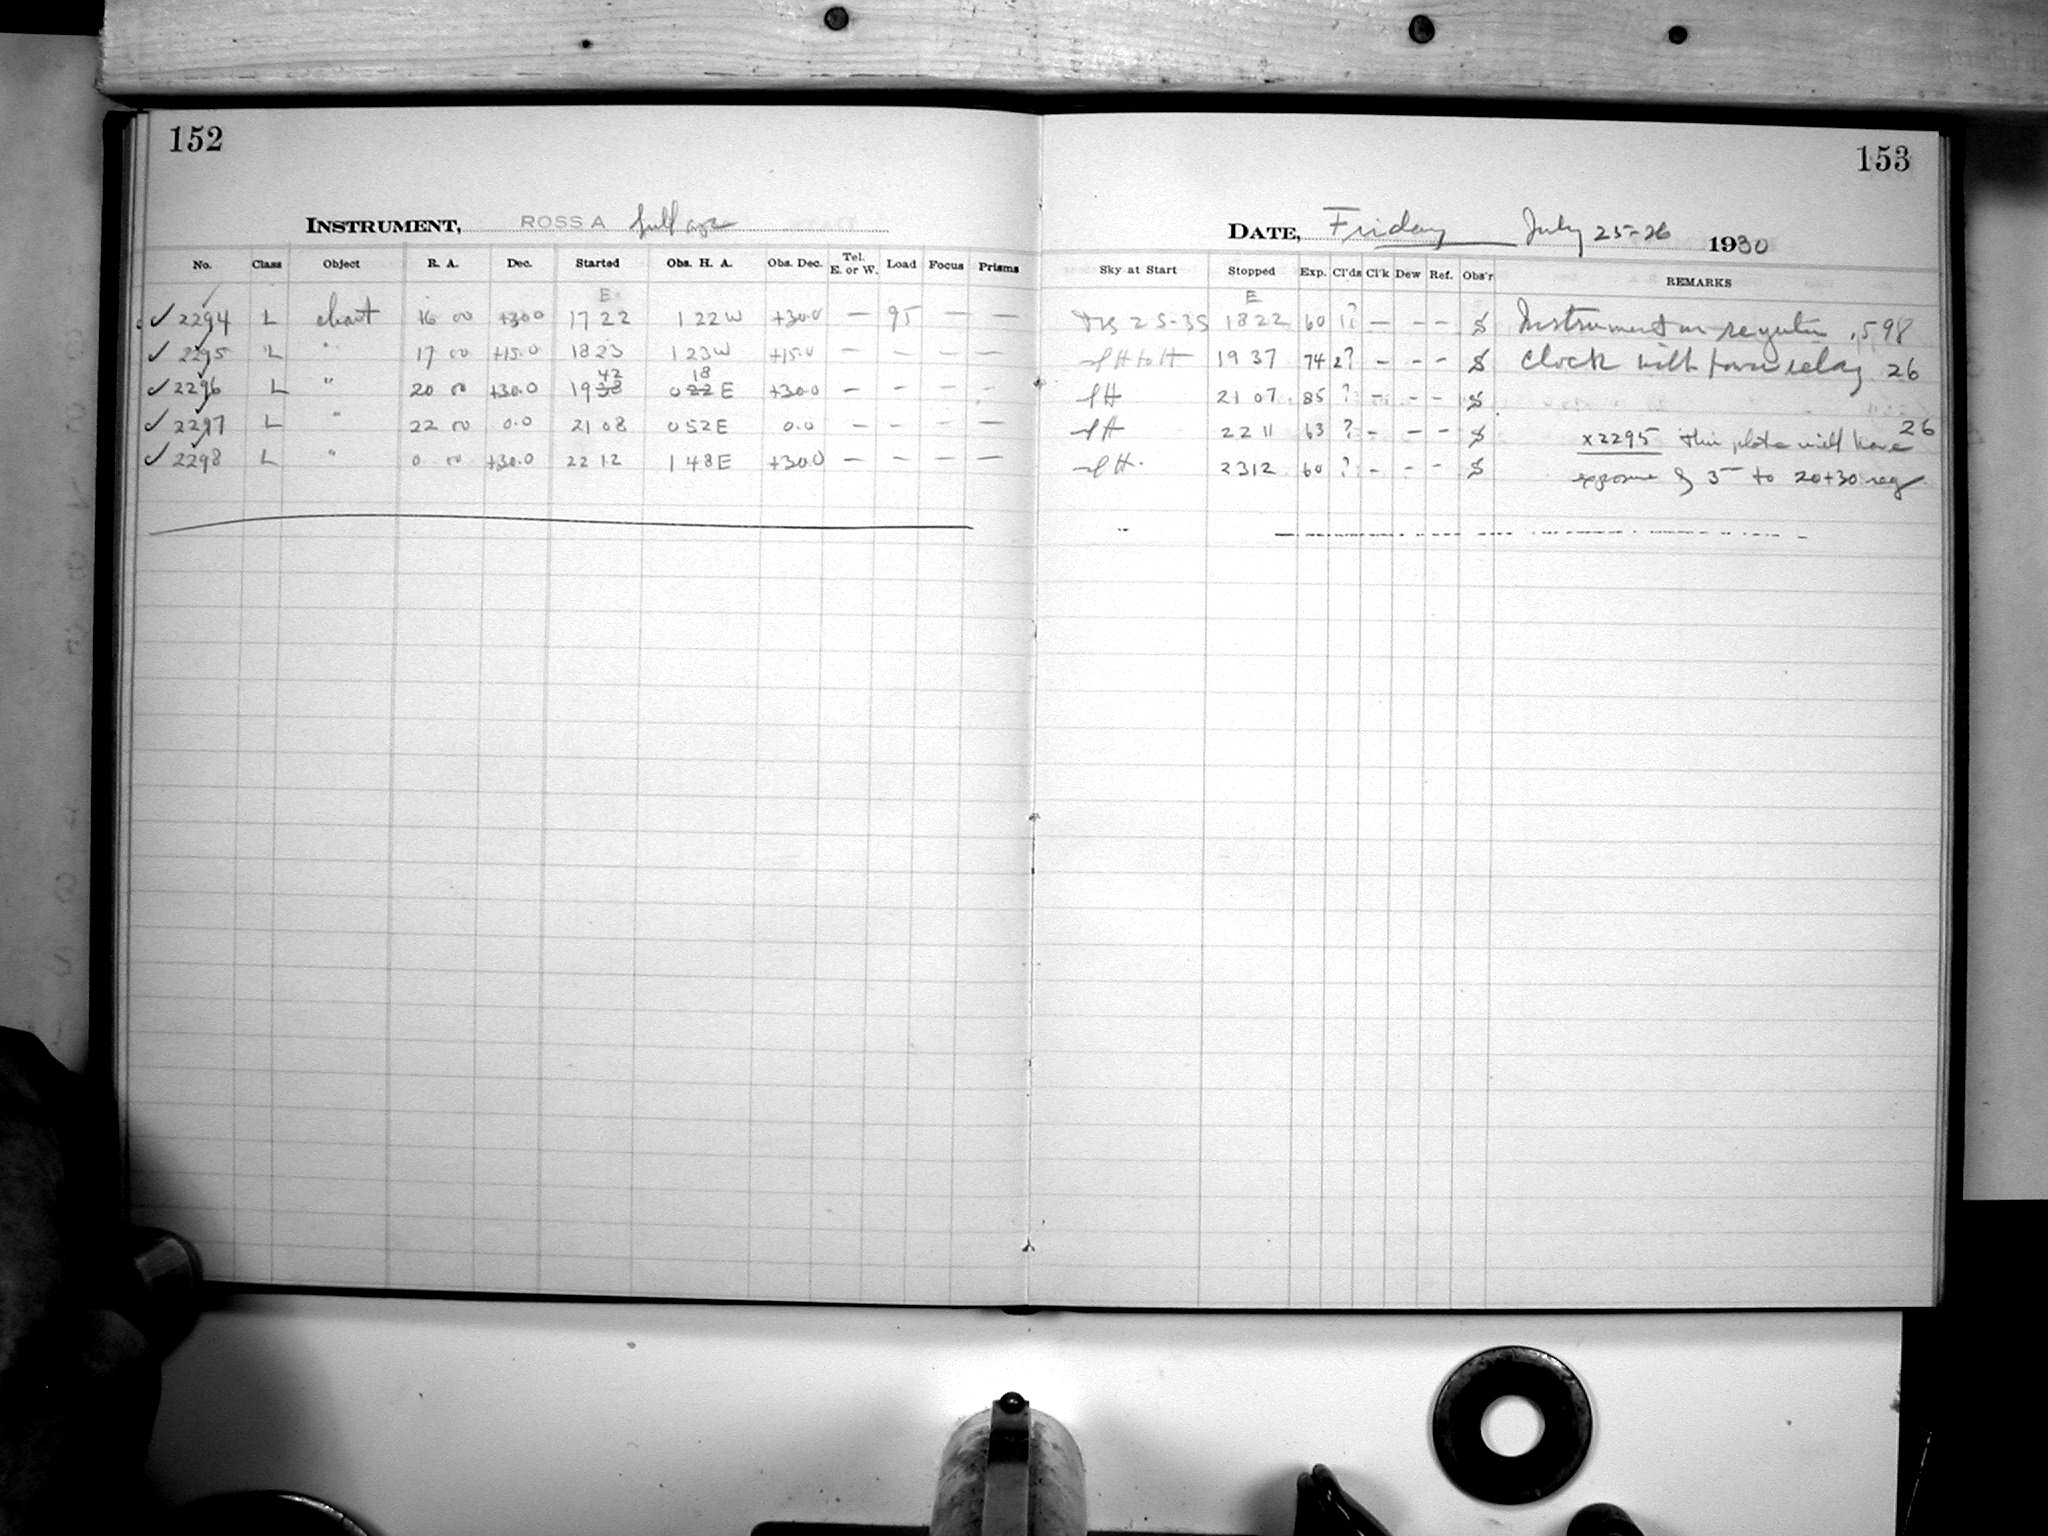 152
153
INSTRUMENT, ROSS A full
DATE, Friday July 25-26 1930
No. Class Object R. A. Dec. Started Obs. H. A. Obs. Dec. Tel. E. or W. Load Focus Prisms Sky at Start Stopped Exp. Cl'ds Cl'k Dew Ref. Obs'r REMARKS
E E
✓ 2294 L chart 16 00 +30.0 17 22 1 22 W +30.0 — 95 — — 2 S-3S 18 22 60 1? — - - S Instrument on regular .598
✓ 2295 L " 17 00 +15.0 18 23 1 23 W +15.0 — — — — H to H 19 37 74 2? - - - S Clock with relay 26
42 18
✓ 2296 L " 20 00 +30.0 19 38 0 22 E +30.0 - - - - H 21 07 85 ? - - - S
✓ 2297 L " 22 00 0.0 21 08 0 52 E 0.0 — — — — H 22 11 63 ? - - - S 26
x2295 this plate will have
✓ 2298 L " 0 00 +30.0 22 12 1 48 E +30.0 — — — — H. 23 12 60 ? - - - S
exposure of 5 to 20+30 reg